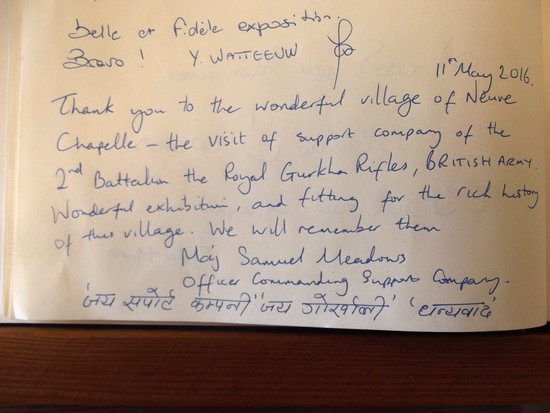 belle et fidèle exposition.
Bravo ! Y. WATTEEUW
11th May 2016.
Thank you to the wonderful village of Neuve
Chapelle – the visit of support company of the
2nd Battalion the Royal Gurkha Rifles, BRITISH ARMY.
Wonderful exhibition, and fitting for the rich history
of this village. We will remember them
Maj Samuel Meadows
Officer Commanding Support Company.
'जय सपोर्ट कम्पनी' 'जय गोर्खाली' 'धन्यवाद'